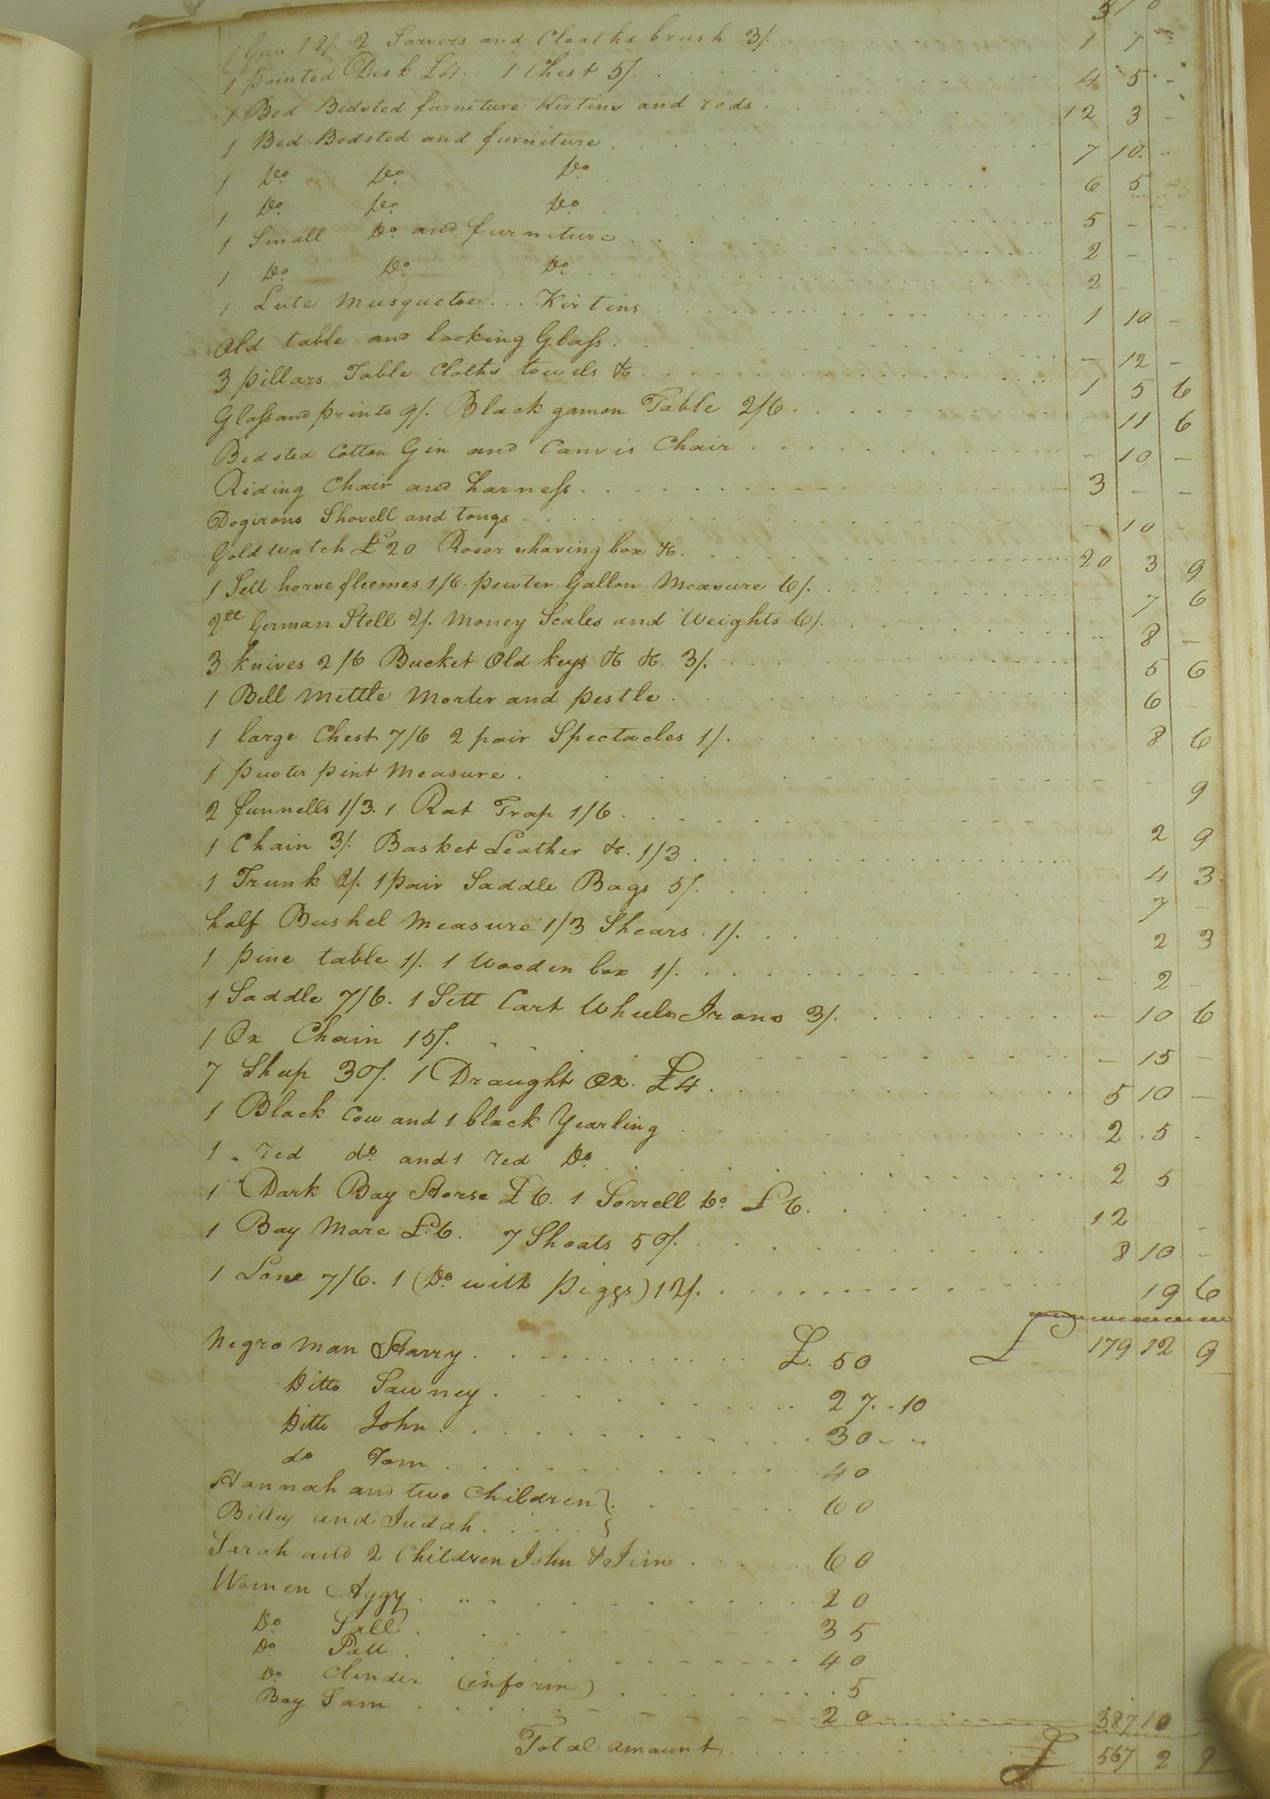 1 Gun 18/. 2 Sarvers and Cloaths brush 3/. 1 7 -
1 painted Desk £4. 1 Chest 5/. 4 5 -
1 Bed Bedsted furneture Kirtins and rods 12 3 -
1 Bed Bedsted and furniture 7 10 -
1 Do Do Do 6 5 -
1 Do Do Do 5 - -
1 Small Do and furniture 2 - -
1 Do Do Do 2 -
1 Lute Musquetoe Kirtins 1 10 -
Old table and looking Glass - 12 -
3 pillars Table Cloths towels &c 1 5 6
Glass and prints 9/. Black gamon Table 2/6 11 6
Bedsted Cotton Gin and Canvis Chair - 10 -
Riding Chair and harness 3 - -
Dogirons Shovell and tongs - 10
Gold watch £20 Rasor shaving box &c. 20 3 9
1 Sett horse fleemes 1/6. pewter Gallon Measure 6/. 7 6
2lb German Stell 2/. Money Scales and Weights 6/. - 8 -
3 knives 2/6 Bucket Old keys &c &c. 3/. 5 6
1 Bell Mettle Morter and pestle 6
1 large Chest 7/6 2 pair Spectacles 1/. 8 6
1 pewter pint Measure. 9
2 funnells 1/3. 1 Rat Trap 1/6 2 9
1 Chain 3/. Basket Leather &c. 1/3 4 3
1 Trunk 2/. 1 pair Saddle Bags 5/. 7 -
half Bushel Measure 1/3 Shears. 1/. 2 3
1 pine table 1/. 1 Wooden box 1/. - 2 -
1 Saddle 7/6. 1 Sett Cart Wheels Irons 3/. - 10 6
1 Ox Chain 15/. - 15 -
7 Sheep 30/. 1 Draught Ox. £4. 5 10 -
1 Black Cow and 1 black Yearling 2 5 -
1 red do and 1 red Do 2 5
1 Dark Bay Horse £6. 1 Sorrell Do £6. 12 -
1 Bay Mare £6. 7 Shoats 50/. 8 10 -
1 Sow 7/6. 1 (Do with piggs) 12/. 19 6
£ 179 12 9
Negro man Harry £. 50
Ditto Sawney 27..10
Ditto John 30 - -
do Tom 40
Hannah and two Children }
Billey and Judah } 60
Sarah and 2 Children John & Jim 60
Women Aggy 20
Do Sall 35
Do Patt 40
Do (inform) 5
Boy Sam 20 387 10 -
Total amount £ 567 2 9